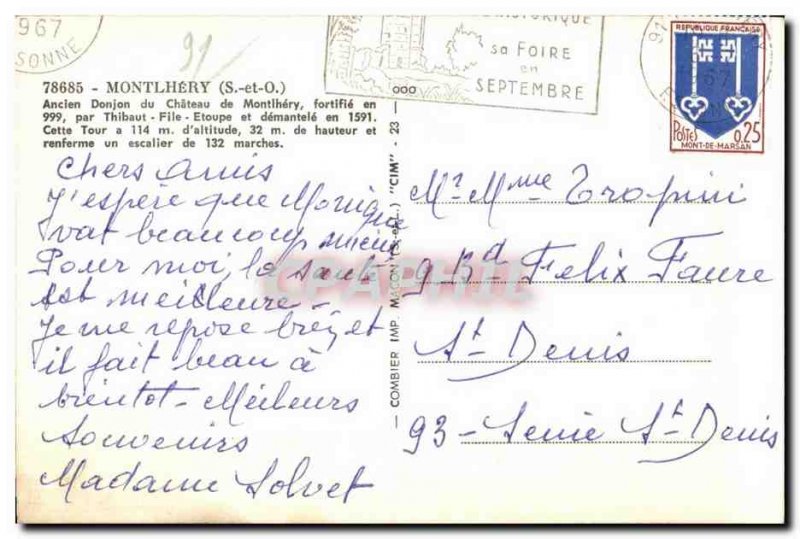 967
SONNE
91/
HISTORIQUE
sa FOIRE
en
SEPTEMBRE
REPUBLIQUE FRANÇAISE
POSTES 0,25
MONT-DE-MARSAN
67
78685 - MONTLHÉRY (S.-et-O.)
Ancien Donjon du Château de Montlhéry, fortifié en
999, par Thibaut - File - Etoupe et démantelé en 1591.
Cette Tour a 114 m. d'altitude, 32 m. de hauteur et
renferme un escalier de 132 marches.
Chers Amis
J'espère que Monique
vat beaucoup mieux
Pour moi, la santé
est meilleure -
Je me repose bien et
il fait beau à
bientot - Meilleurs
Souvenirs
Madame Solvet
— COMBIER IMP. MACON (S.-&-L.) "CIM" - 23 —
Mr Mme Tropini
9 Bd Felix Faure
St Denis
93 - Seine St Denis
CPAPHIL